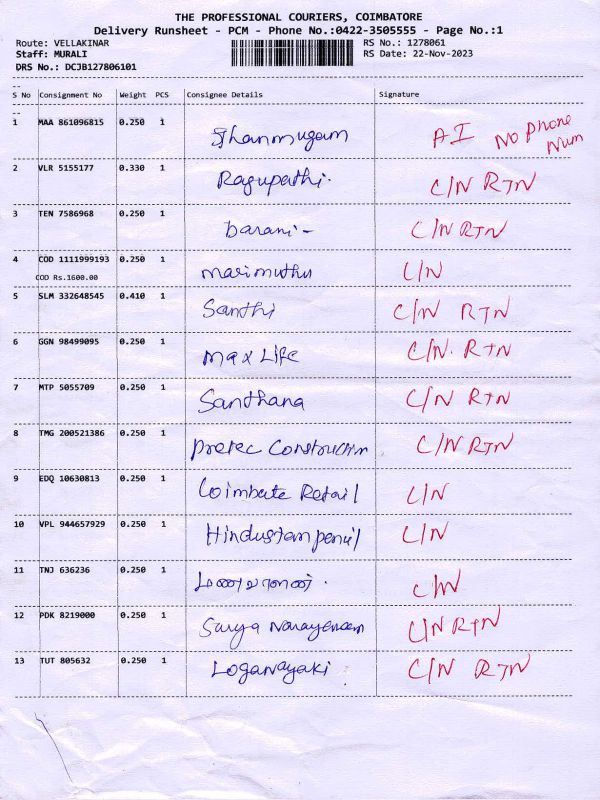 THE PROFESSIONAL COURIERS, COIMBATORE
Delivery Runsheet - PCM - Phone No.:0422-3505555 - Page No.:1
Route: VELLAKINAR RS No.: 1278061
Staff: MURALI RS Date: 22-Nov-2023
DRS No.: DCJB127806101
S No Consignment No Weight PCS Consignee Details Signature
1 MAA 861096815 0.250 1 Shanmugam AI NO Phone Num
2 VLR 5155177 0.330 1 Ragupathi. C/N RTN
3 TEN 7586968 0.250 1 Darani - C/N RTN
4 COD 1111999193 0.250 1 Marimuthu C/N
COD Rs.1600.00
5 SLM 332648545 0.410 1 Santhi C/N RTN
6 GGN 98499095 0.250 1 Max Life C/N. RTN
7 MTP 5055709 0.250 1 Santhana C/N RTN
8 TMG 200521386 0.250 1 Construction C/N RTN
9 EDQ 10630813 0.250 1 Coimbate Retail C/N
10 VPL 944657929 0.250 1 Hindustan pencil C/N
11 TNJ 636236 0.250 1 C/N
12 PDK 8219000 0.250 1 Surya Narayanan C/N RTN
13 TUT 805632 0.250 1 Loganayaki C/N RTN